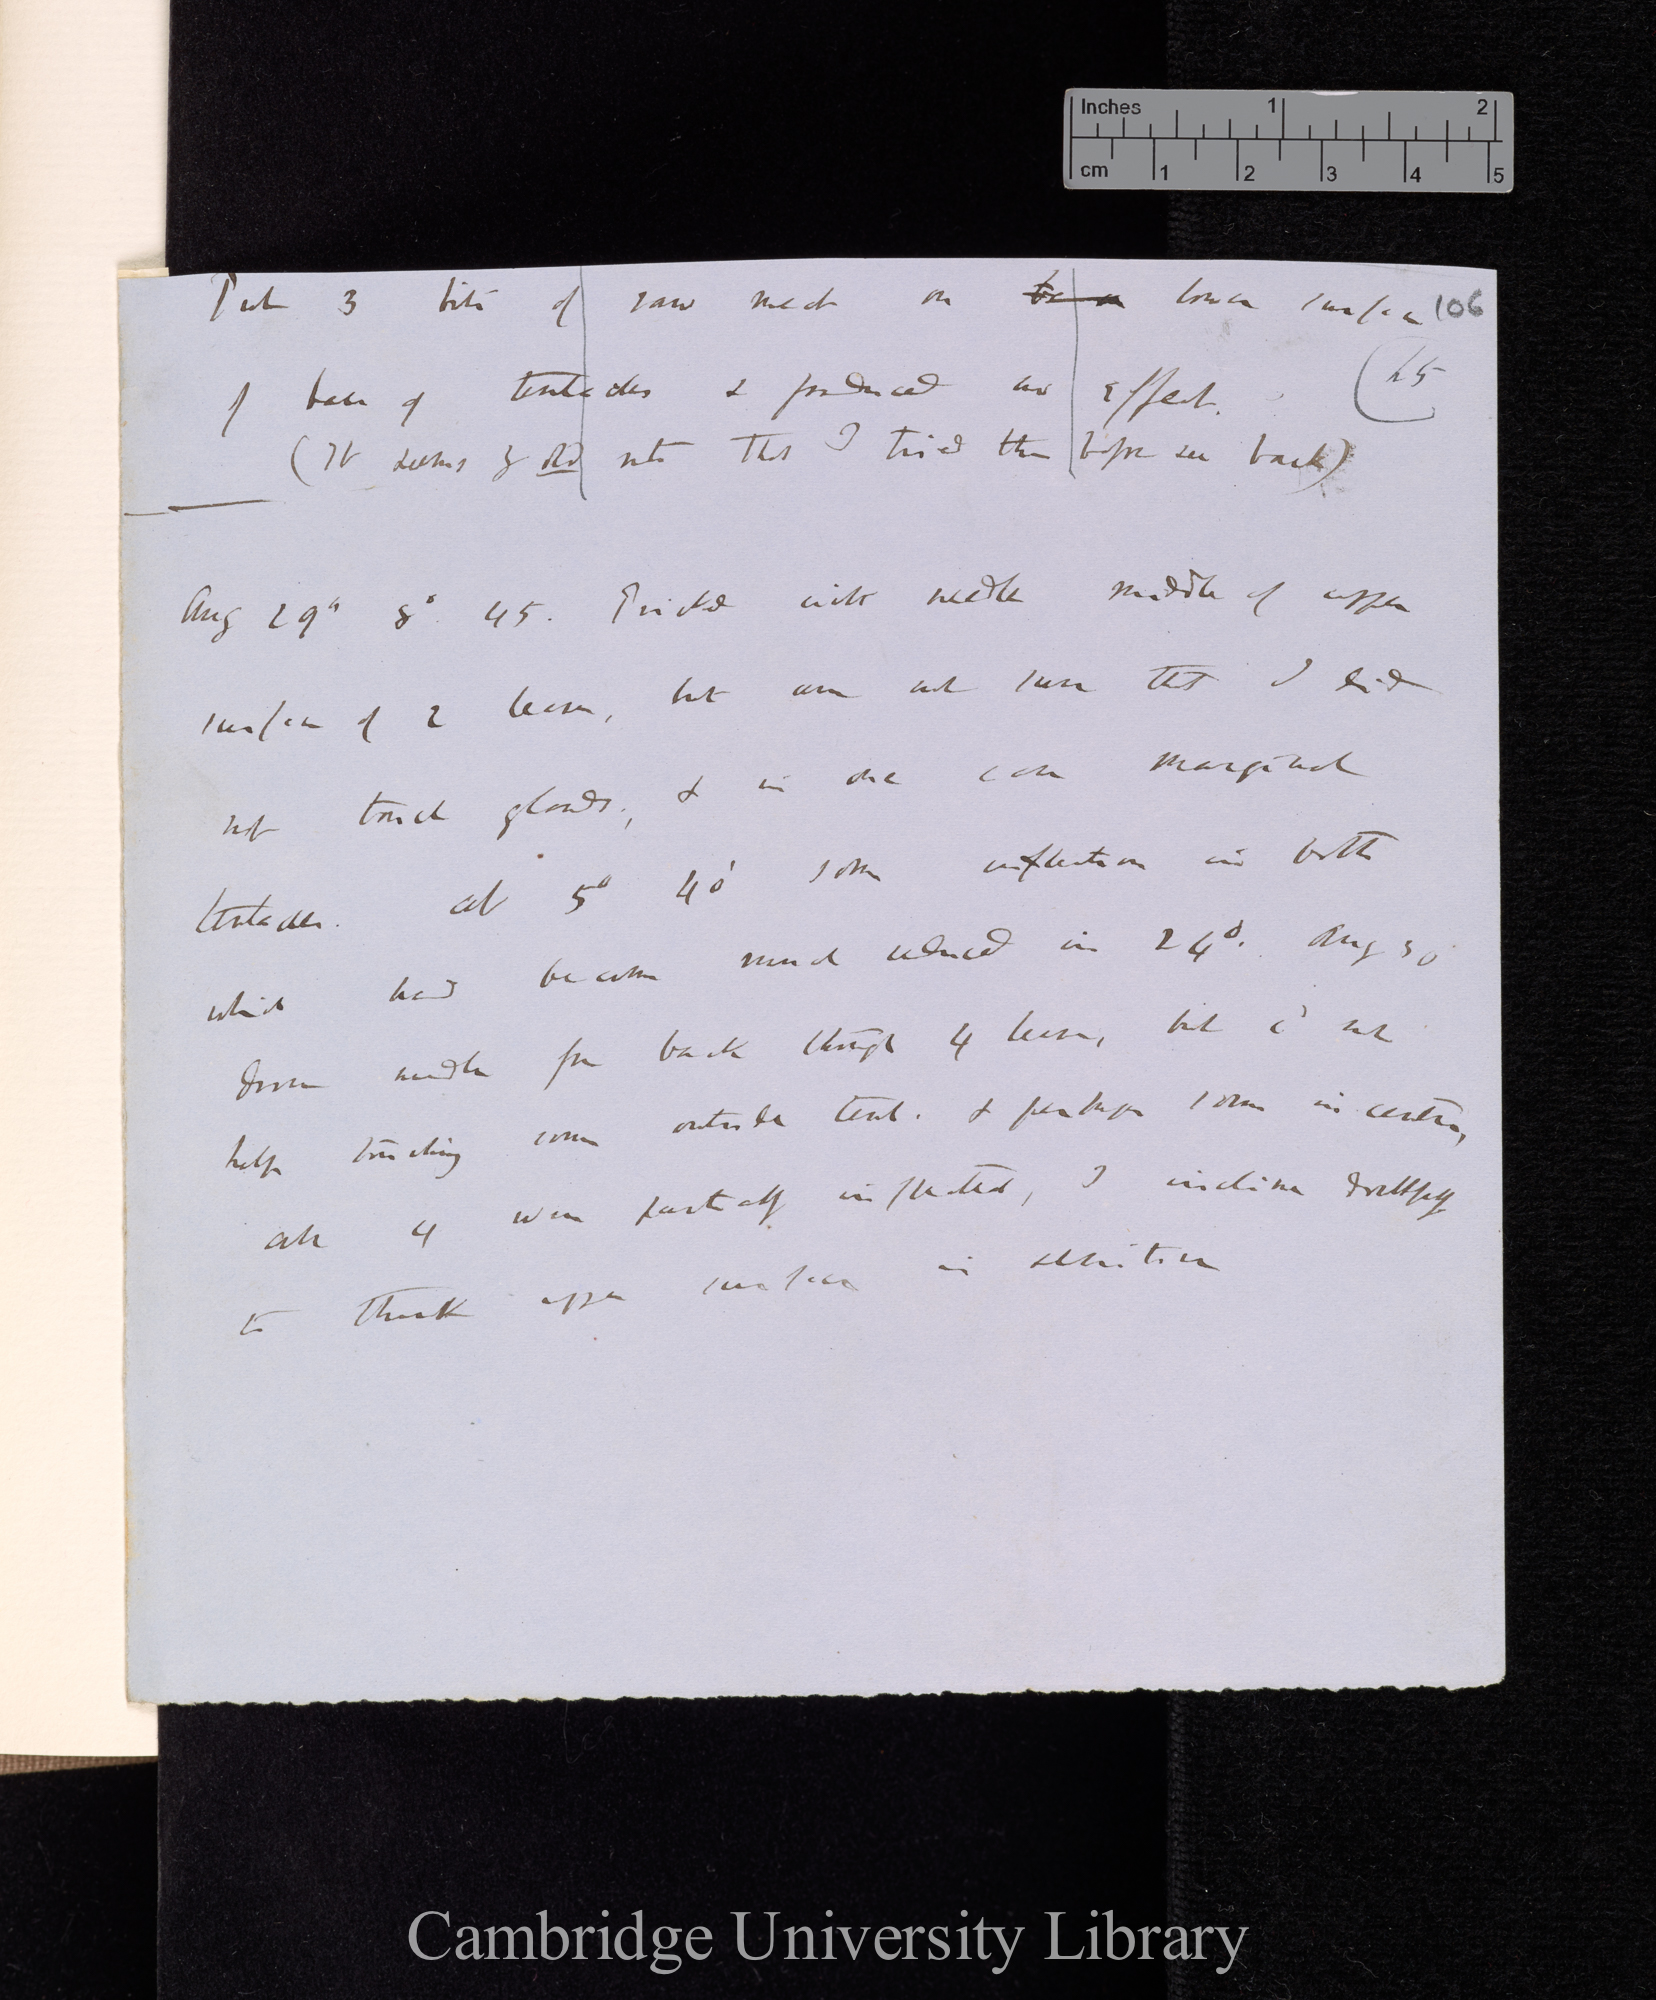 Inches 1 2
cm 1 2 3 4 5
Put 3 bits of raw meat on lower surface 106
of base of tentacles & produced no effect. (25
(It seems by old note that I tried this before see back)
Aug 29th 8° 45. Pricked with needle middle of upper
surface of 2 leaves, but am not sure that I did
not touch glands, & in one case marginal
tentacles. at 5° 40' some inflection in both
which had become much reduced in 24°. Aug 30
drove needle from back through 4 leaves, but cd not
help touching some outside tent. & perhaps some in centre,
all 4 were partially inflected, I incline doubtfully
to think upper surface is sensitive
Cambridge University Library